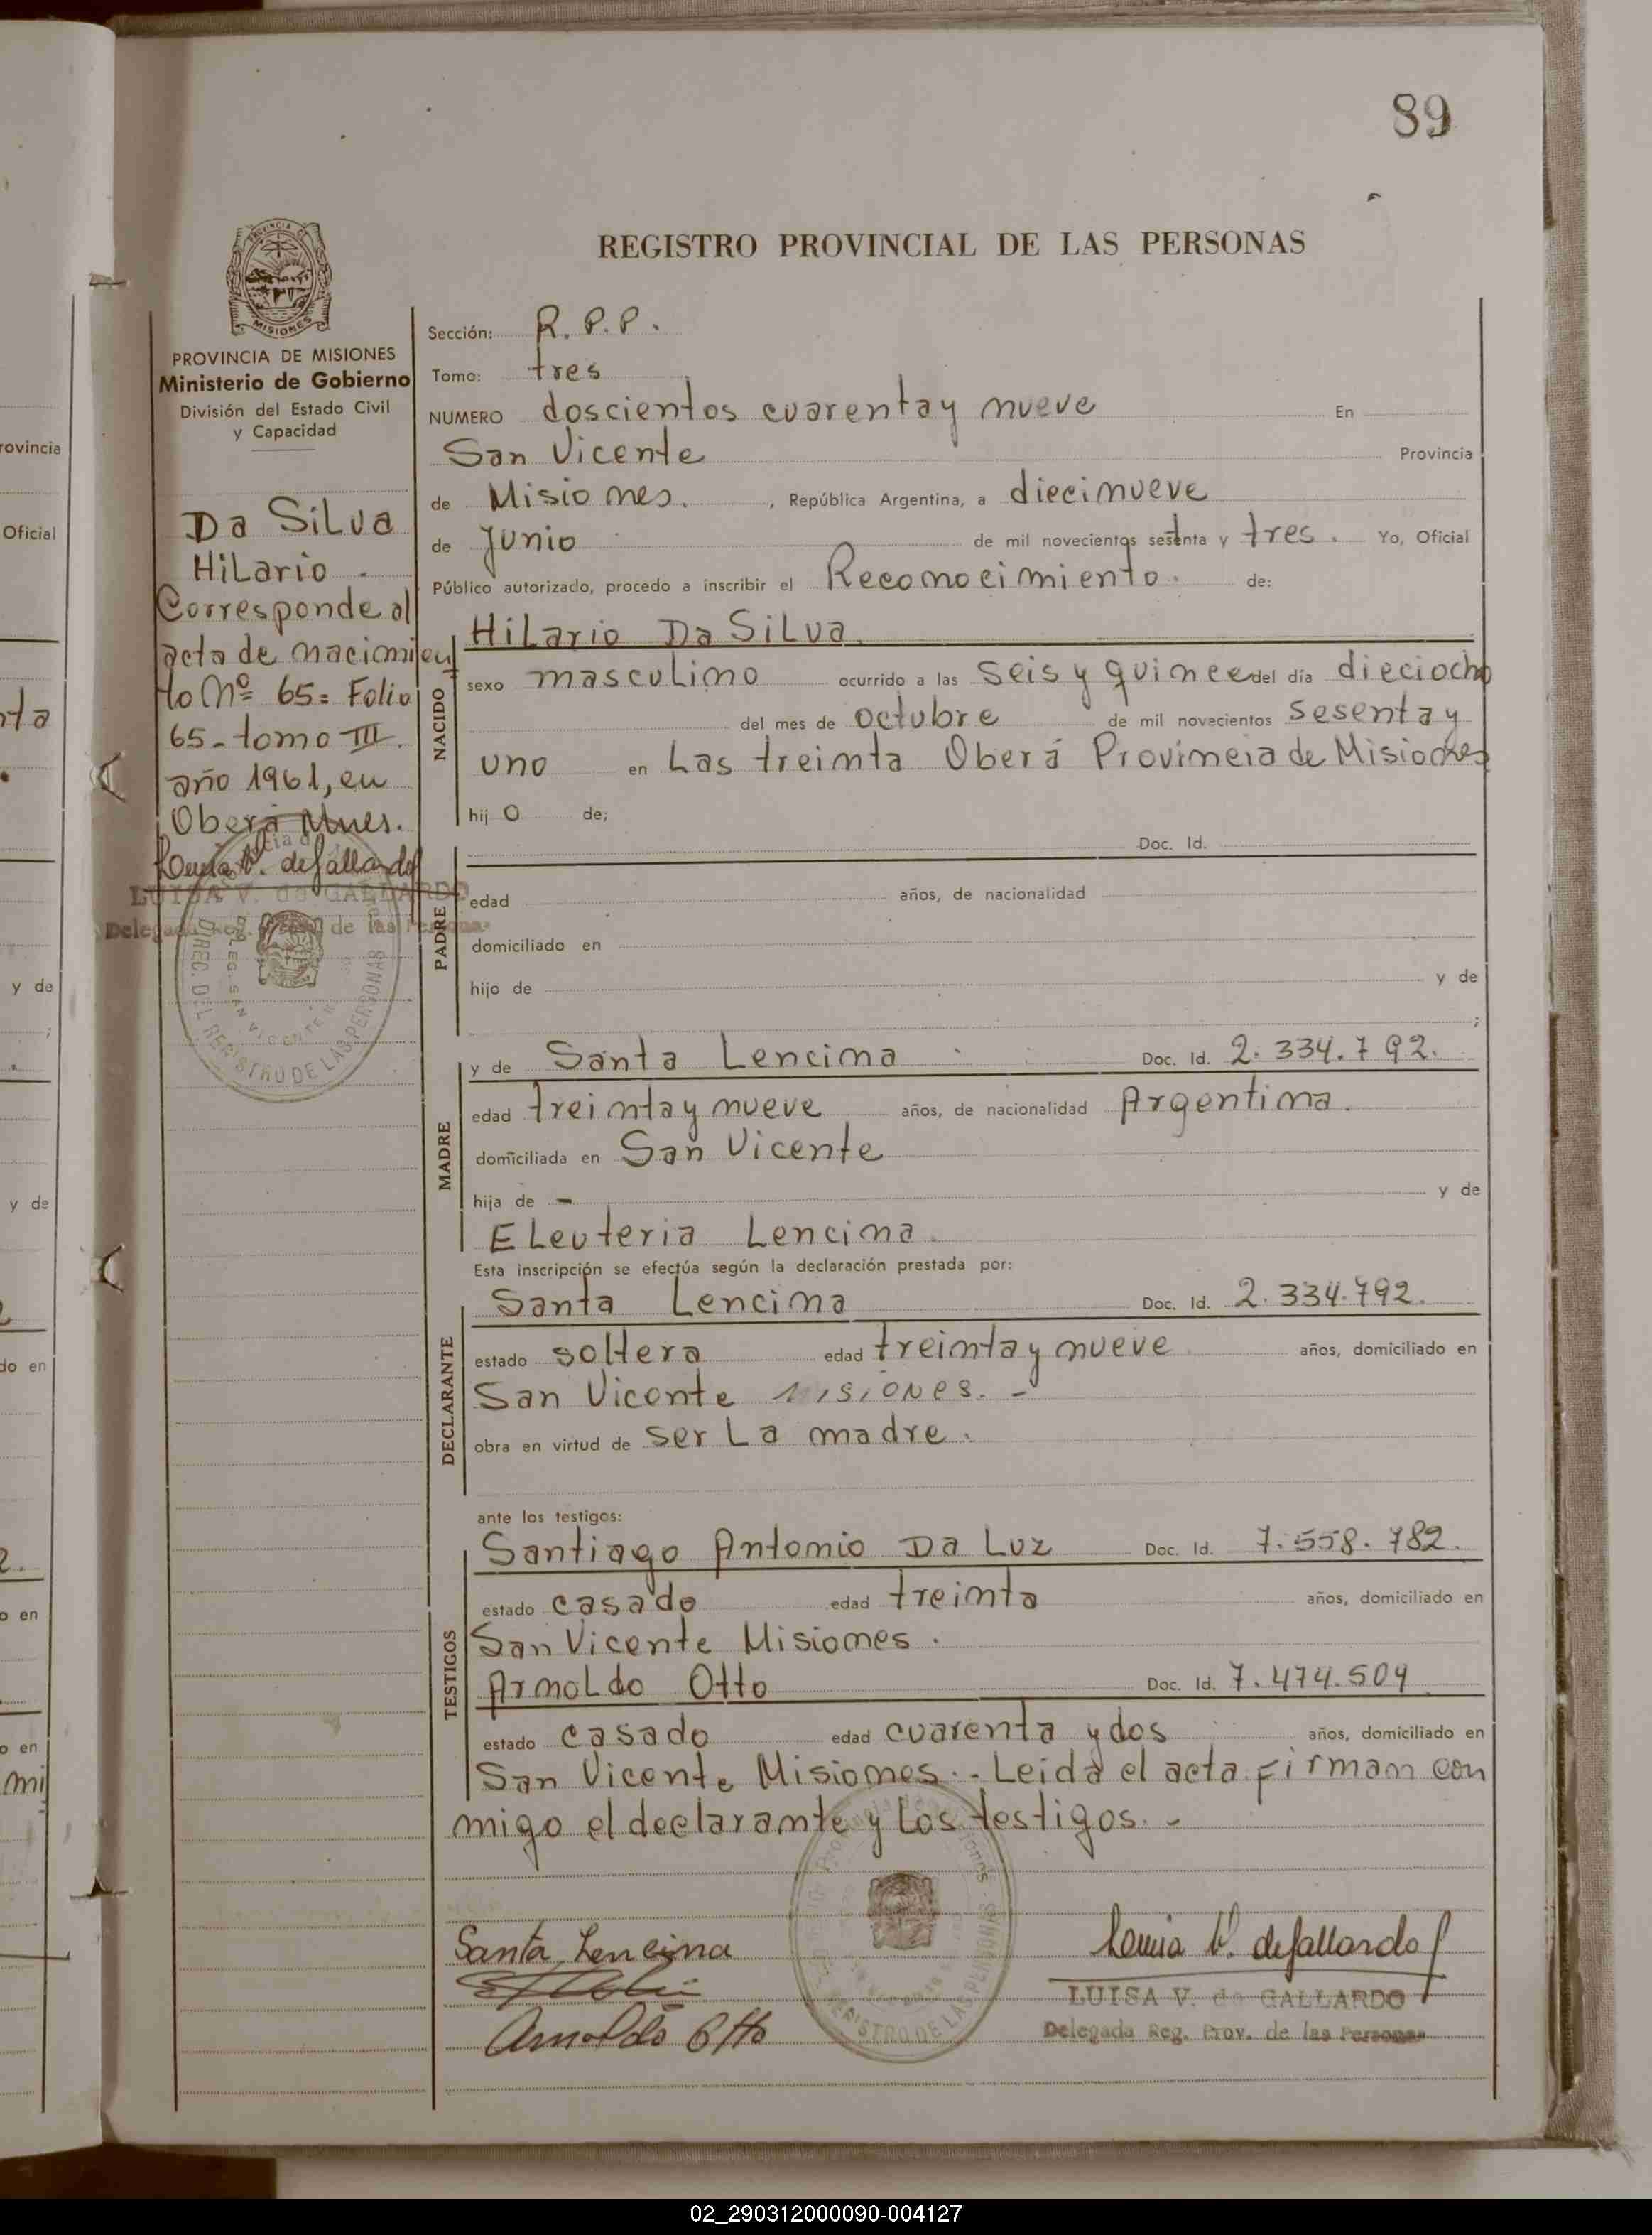 89
REGISTRO PROVINCIAL DE LAS PERSONAS
PROVINCIA DE MISIONES
Ministerio de Gobierno
División del Estado Civil
y Capacidad
Da Silva
Hilario.
Corresponde al
acta de nacimien
to Nº 65= Folio
65- tomo III.
año 1961, en
Oberá Mnes.
Luisa V. de Gallardo
LUISA V. de GALLARDO
Delegada Reg. Prov. de las Personas
DIREC. DEL REGISTRO DE LAS PERSONAS
DELEG. SAN VICENTE
Sección: R. P. P.
Tomo: tres
NUMERO doscientos cuarenta y nueve En
San Vicente Provincia
de Misiones. , República Argentina, a diecinueve
de Junio de mil novecientos setenta y tres. Yo, Oficial
Público autorizado, procedo a inscribir el Reconocimiento. de:
NACIDO
Hilario Da Silva.
sexo masculino ocurrido a las seis y quince del día dieciocho
del mes de octubre de mil novecientos sesenta y
uno en Las treinta Oberá Provincia de Misiones
hij o de;
PADRE
Doc. Id.
edad años, de nacionalidad
domiciliado en
hijo de y de
;
MADRE
y de Santa Lencina Doc. Id. 2.334.792.
edad treinta y nueve años, de nacionalidad Argentina.
domiciliada en San Vicente
hija de - y de
Eleuteria Lencina.
Esta inscripción se efectúa según la declaración prestada por:
DECLARANTE
Santa Lencina Doc. Id. 2.334.792.
estado soltera edad treinta y nueve años, domiciliado en
San Vicente Misiones. -
obra en virtud de ser La madre.
ante los testigos:
TESTIGOS
Santiago Antonio Da Luz Doc. Id. 7.558.782.
estado casado edad treinta años, domiciliado en
San Vicente Misiones.
Arnoldo Otto Doc. Id. 7.474.504
estado casado edad cuarenta y dos años, domiciliado en
San Vicente Misiones.- Leida el acta firman con
migo el declarante y Los testigos.-
Santa Lencina
Arnoldo Otto
Luisa V. de Gallardo
LUISA V. de GALLARDO
Delegada Reg. Prov. de las Personas
REGISTRO DE LAS PERSONAS
rovincia
Oficial
nta
y de
y de
do en
o en
o en
mi
02_290312000090-004127